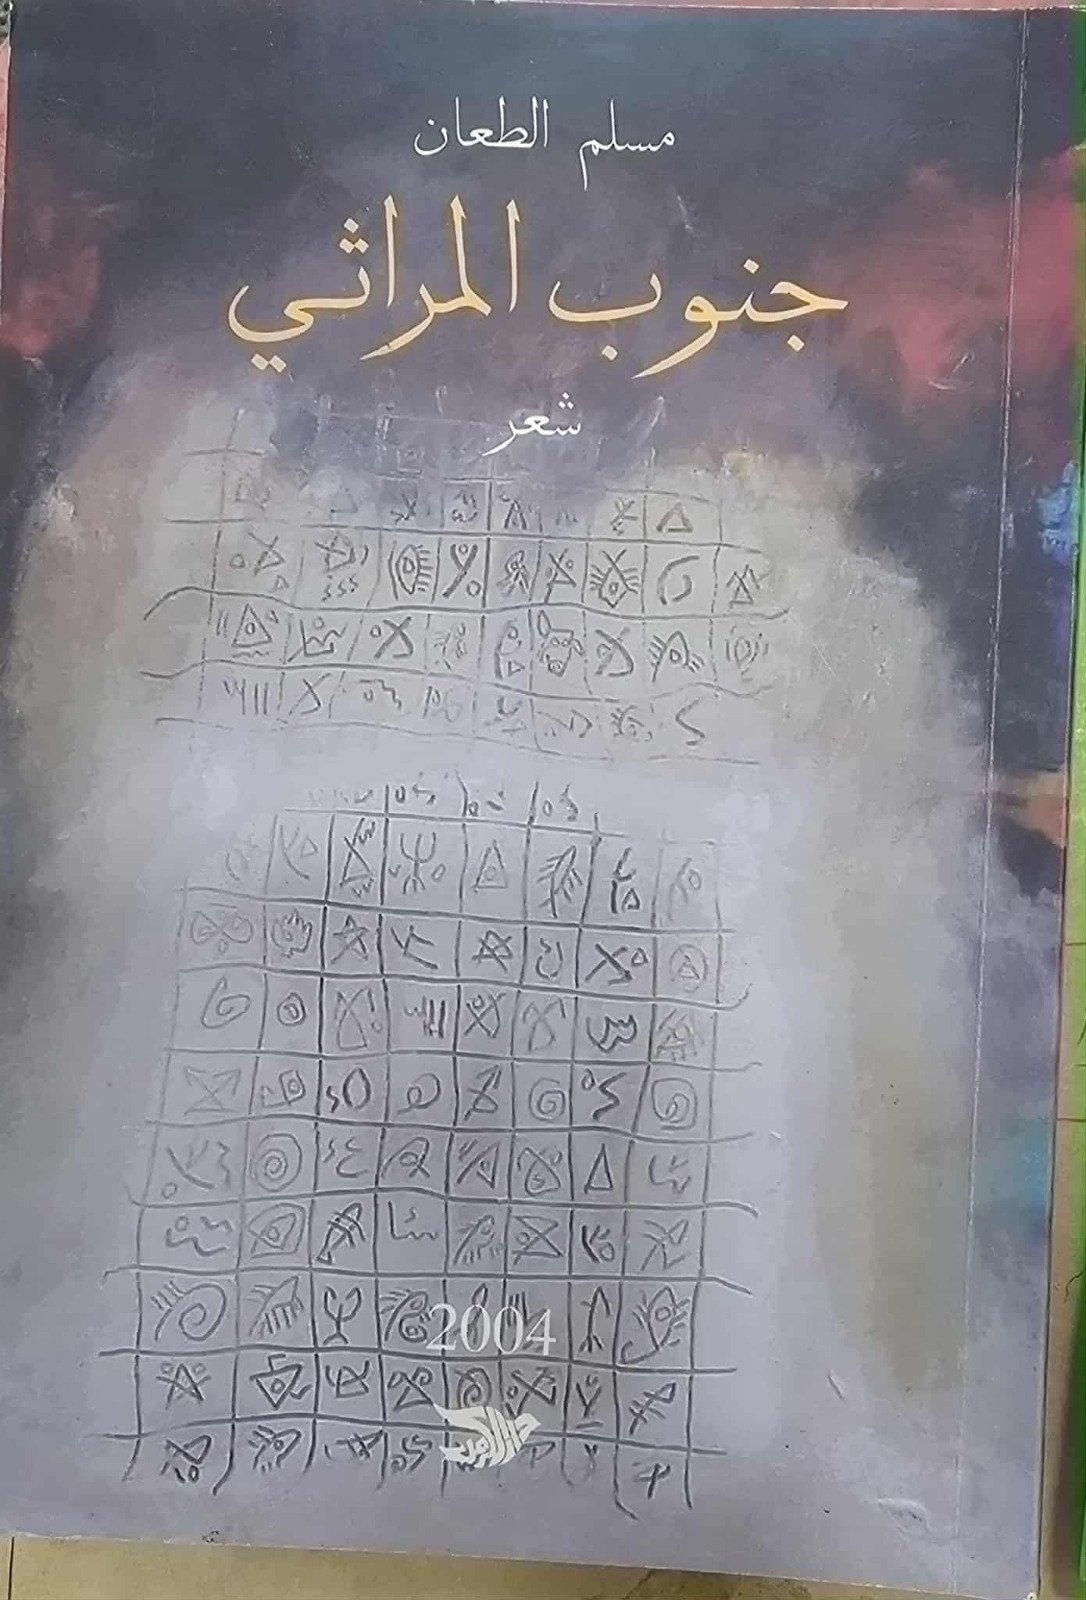 مسلم الطعان
جنوب المراثي
شعر
2004